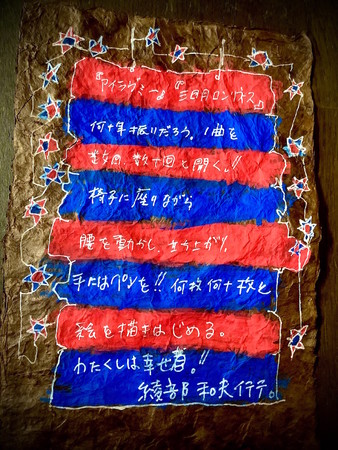 『アイラヴミー』『三日月ロンリネス』
何十年振りだろう。1曲を
数回、数十回と聞く。!!
椅子に座りながら
腰を動かし、立ち上がり、
手にはペンを!! 何枚何十枚と
絵を描きはじめる。
わたくしは幸せ者。!!
綾部 和夫 行テ。